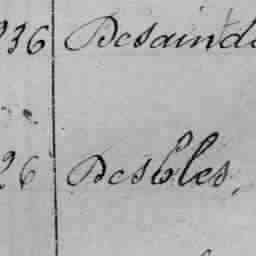 936 Desaind
26 Desbles,